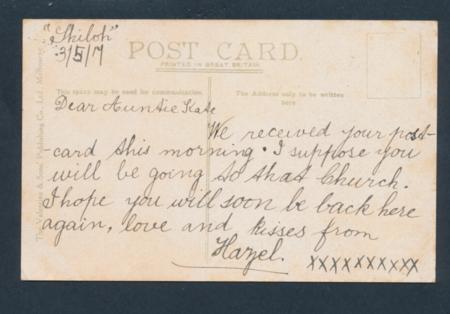 "Shiloh"
3/5/17
POST CARD.
PRINTED IN GREAT BRITAIN.
This space may be used for communication.
The Address only to be written
here
Dear Auntie Kate
We received your post-
-card this morning. I suppose you
will be going to that Church.
I hope you will soon be back here
again, love and kisses from
Hazel.
xxxxxxxxxx
The Valentine & Sons' Publishing Co., Ltd., Melbourne